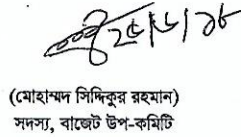 ২৫/৬/১৮
(মোহাম্মদ সিদ্দিকুর রহমান)
সদস্য, বাজেট উপ-কমিটি